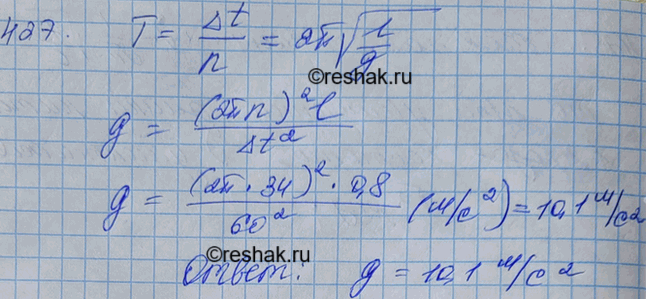 427. T = Δt/n = 2π√(l/g)
©reshak.ru
g = (2πn)²l/Δt²
g = (2π·34)²·0,8/60² (м/с²) = 10,1 м/с²
©reshak.ru
Ответ: g = 10,1 м/с²